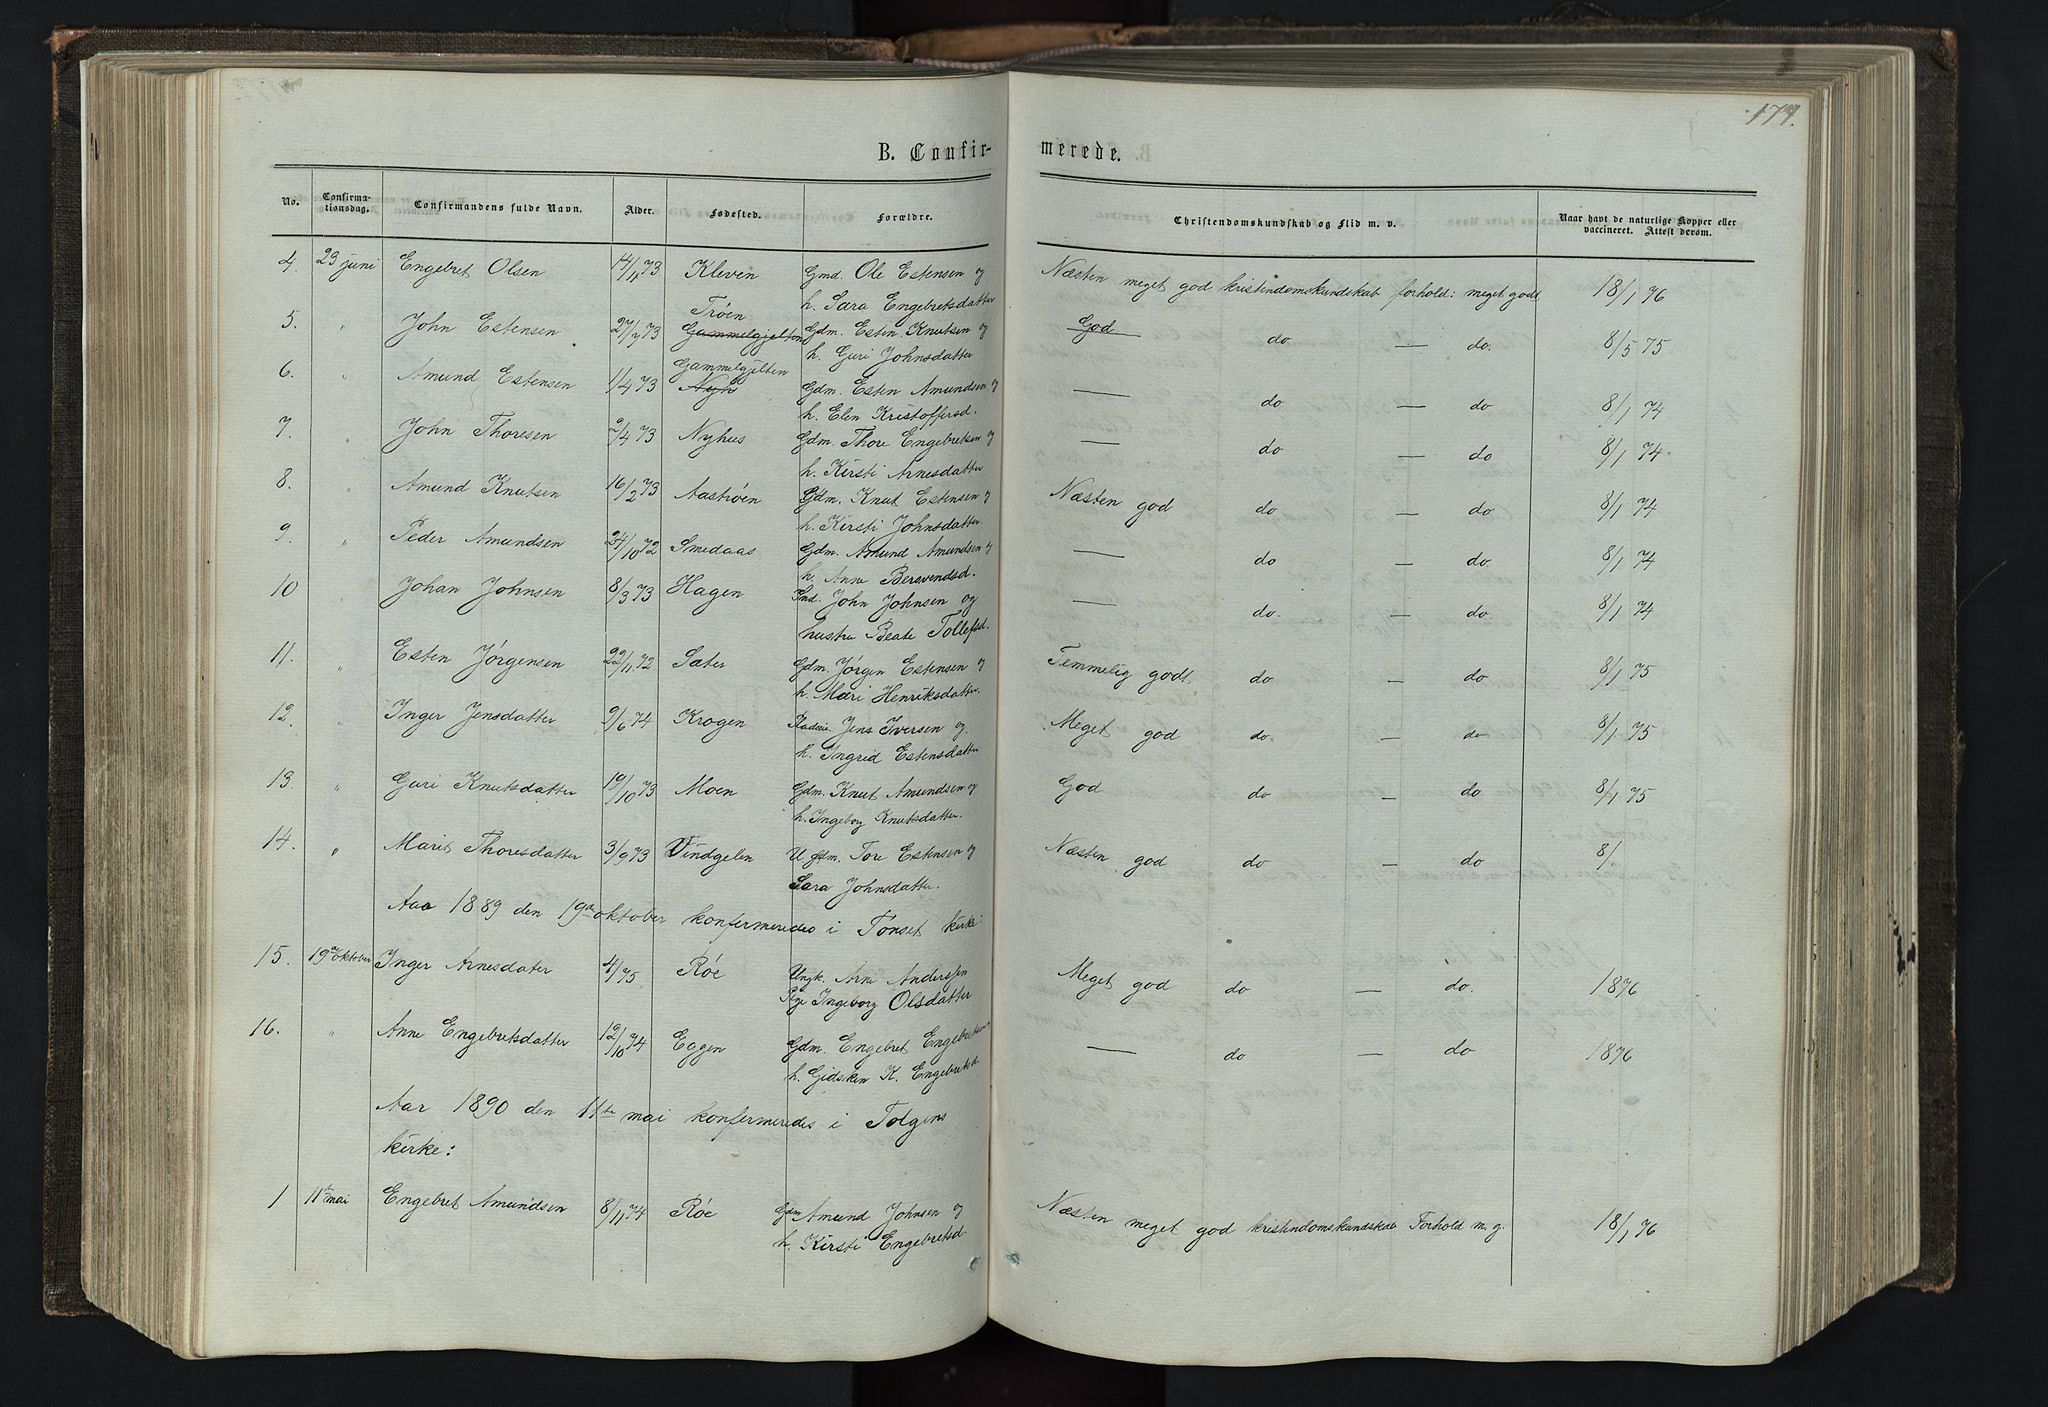 174.
B. Confirmerede.
No. Confirmationsdag. Confirmandens fulde Navn. Alder. Fødested. Forældre. Christendomskundskab og Flid m. v. Naar havt de naturlige Kopper eller vaccineret. Attest derom.
4. 23 juni Engebret Olsen 14/11 73 Kleven Gmd. Ole Estensen og Næsten meget god kristendomskundskab forhold: meget godt 18/1 76
h. Sara Engebretsdatter
5. " John Estensen 27/7 73 Trøen Gammelgjelten Gdm. Esten Knutsen og God do — do. 8/5 75
h. Guri Johnsdatter
6. " Amund Estensen 1/4 73 Gammelgjelten Nyh Gdm. Esten Amundsen og — do — do 8/1 74
h. Elen Kristoffersd.
7. " John Thoresen 9/4 73 Nyhus Gdm. Thore Engebretsen og — do — do 8/1 74
h. Kirsti Arnesdatter
8. " Amund Knutsen 16/2 73 Aastrøen Gdm. Knut Estensen og Næsten god do — do 8/1 74
h. Kirsti Johnsdatter.
9. " Peder Amundsen 24/10 72 Smedaas Gdm. Amund Amundsen og — do — do. 8/1 74
h. Anne Beravendsd.
10 " Johan Johnsen 8/3 73 Hagen John Johnsen og — do. — do. 8/1 74
hustru Beate Tollefsd.
11. " Esten Jørgensen 22/11 72 Sæter Gdm. Jørgen Estensen og Temmelig godt do — do 8/1 75
h. Mari Henriksdatter.
12. " Inger Jensdatter 9/6 74 Krogen Jens Iversen og Meget god do. — do 8/1 75
h. Ingrid Estensdatter
13. " Guri Knutsdatter 19/10 73 Moen Gdm. Knut Amundsen og God do — do 8/1 75
h. Ingeborg Knutsdatter.
14. " Marit Thoresdatter 3/9 73 Vindgelen U Gdm. Tore Estensen og Næsten god do — do 8/
Sara Johnsdatter.
Aar 1889 den 19de oktober konfermeredes i Tonset kirke:
15. 19de oktober Inger Arnesdater 4/1 75 Røe Ungk. Arne Anderssen Meget god do — do. 1876
Pige Ingeborg Olsdatter
16. " Anne Engebretsdatter 12/10 74 Eggen Gdm. Engebret Engebretsen — do — do 1876
h. Gidsken K. Engebretsd.
Aar 1890 den 11te mai konfermeredes i Tolgens
kirke:
1 11te mai Engebret Amundsen 8/11 74 Røe Gdm Amund Johnsen og Næsten meget god kristendomskundskab Forhold m. g. 18/1 76
h. Kirsti Engebretsd.